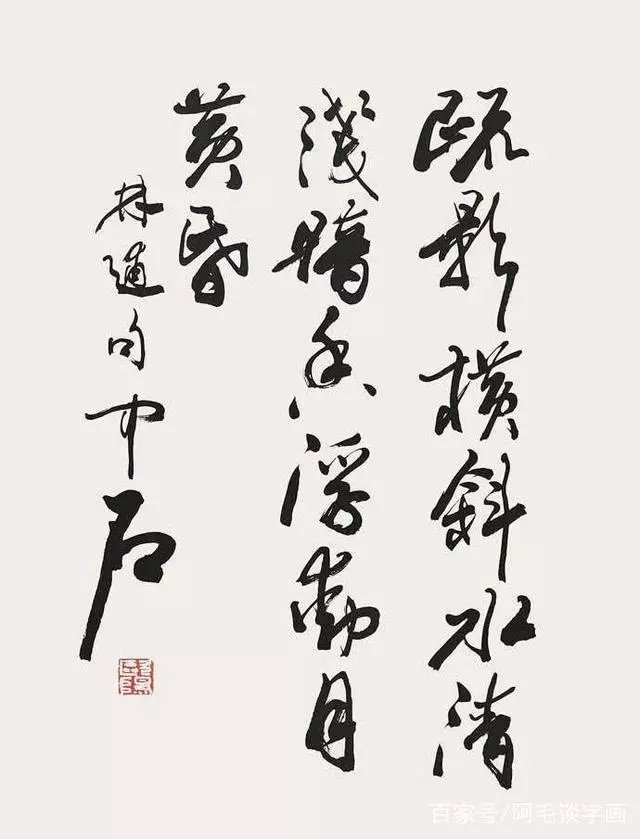 疏影横斜水清
浅暗香浮动月
黄昏
林逋句中石
百家号/阿毛谈字画